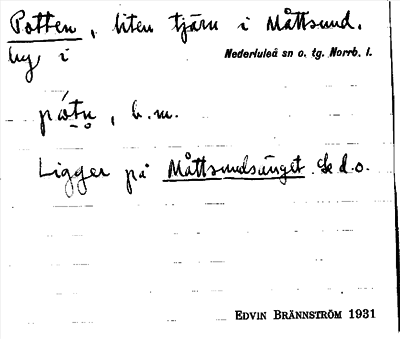 Potten, liten tjärn i Måttsund.
by, i Nederluleå sn o. tg. Norrb. l.
pótn, b. m.
Ligger på Måttsundsänget. Se d. o.
EDVIN BRÄNNSTRÖM 1931